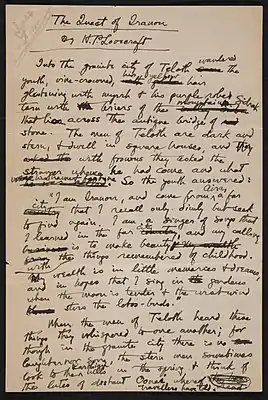 The Quest of Iranon
By H. P. Lovecraft
Into the granite city of Teloth wandered the
youth, vine-crowned, his yellow hair
glistening with myrrh & his purple robe
torn with briers of the mountain Sidrak
that lies across the antique bridge of
stone. The men of Teloth are dark and
stern, & dwell in square houses, and
with frowns they asked the
stranger whence he had come and what
were his name & fortune. So the youth answered:
"I am Iranon, and come from Aira, a far
city that I recall only dimly but seek
to find again. I am a singer of songs that
I learned in the far city, and my calling
is to make beauty with
the things remembered of childhood.
My wealth is in little memories & dreams,
and in hopes that I sing in gardens
when the moon is tender & the west wind
stirs the lotos-buds."
When the men of Teloth heard these
things they whispered to one another; for
though in the granite city there is no
laughter nor song, the stern men sometimes
look to the Karthian hills in the spring & think of
the lutes of distant Oonai, whereof
travellers have told.